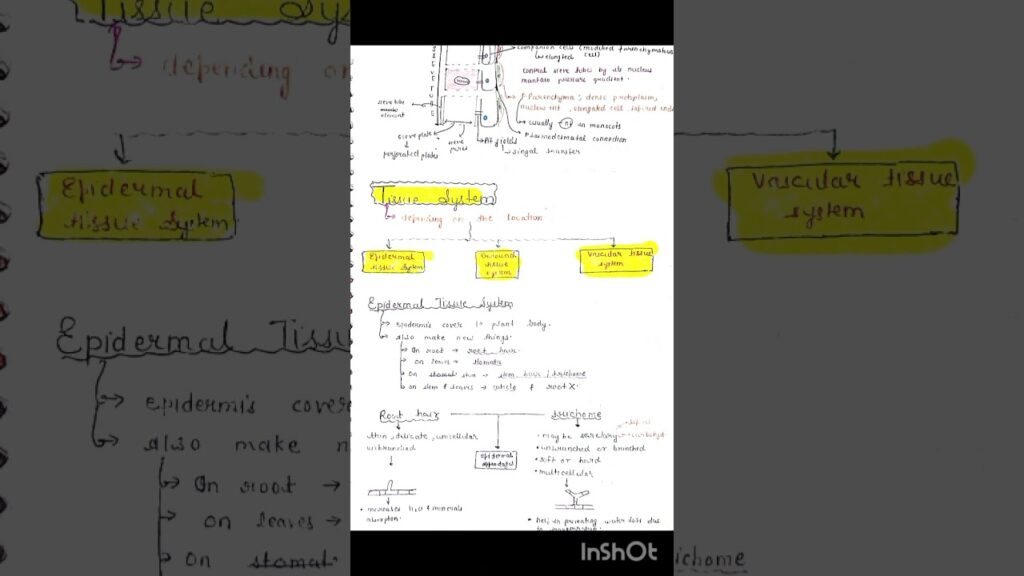 Tissue System
depending on
Epidermal
tissue System
Vascular tissue
system
Epidermal Tissue
epidermis covers
also make n
On root →
on leaves →
on stomat
companion cells (modified parenchymatous
(elongated cell)
control sieve tubes by its nucleus
maintain pressure gradient.
Parenchyma; dense protoplasm,
nucleus, elongated cell, tapered ends
usually in monocots
Plasmodesmatal connection
signal transfer
sieve tube
element
sieve plate
perforated plates
sieve
pores
Pit fields
Tissue System
depending on the location
Epidermal
tissue System
Ground
tissue
system
Vascular tissue
system
Epidermal Tissue System
epidermis covers 1° plant body.
also make new things.
On root → root hair
on leaves → stomata
On stomat stem → stem hair / trichome
on stem & leaves → cuticle & root X.
Root hair
trichome
thin, delicate, unicellular
unbranched
Epidermal
appendages
• may be secretary
• unbranched or branched
• soft or hard
• multicellular
• increases H2O & minerals
absorption.
• help in preventing water loss due
to transpiration
InShOt
richome